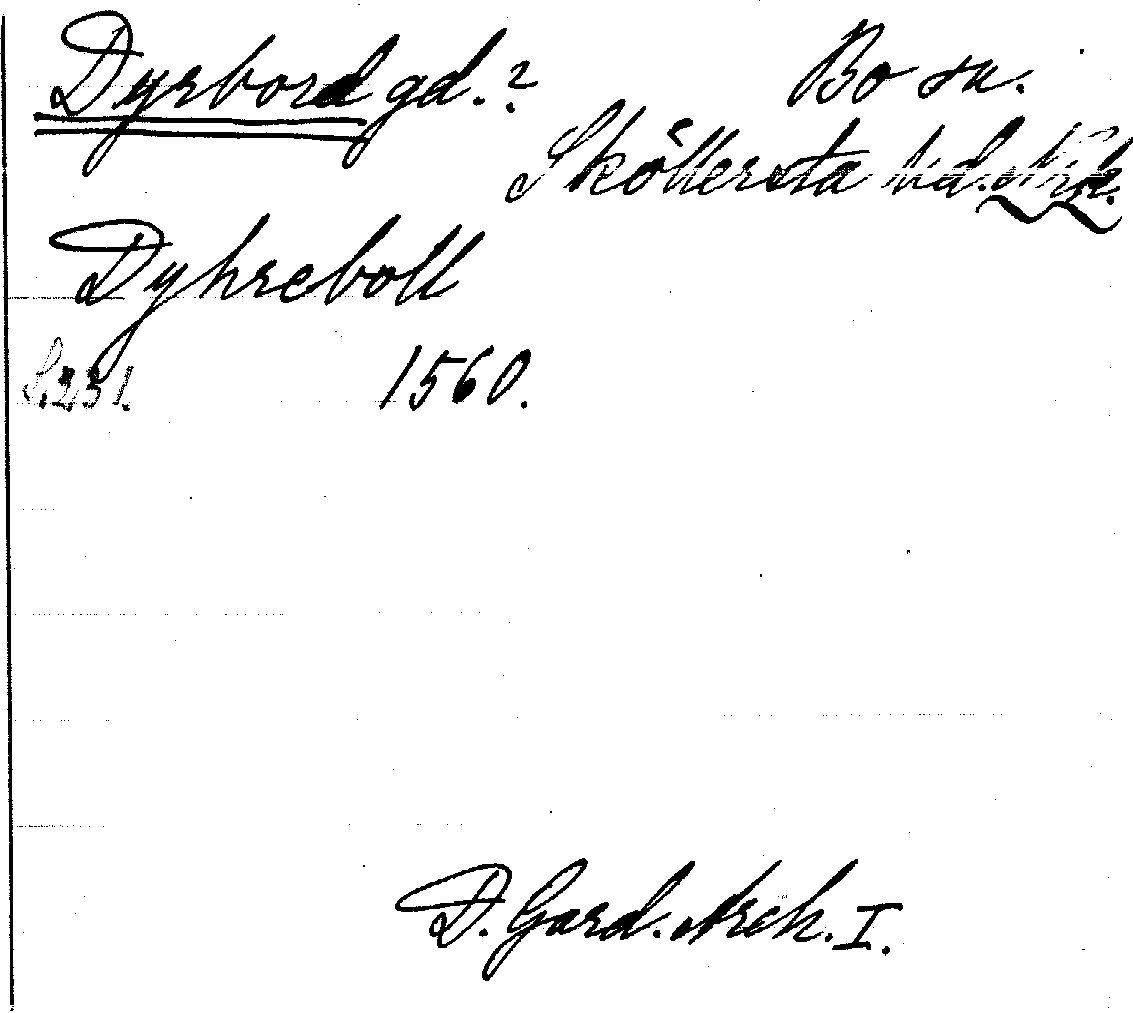 Dyrbord gd.? Bo sn.
Sköllersta hd. Nrk.
Dyhreboll
S. 231. 1560.
D. Gard. Arch. I.